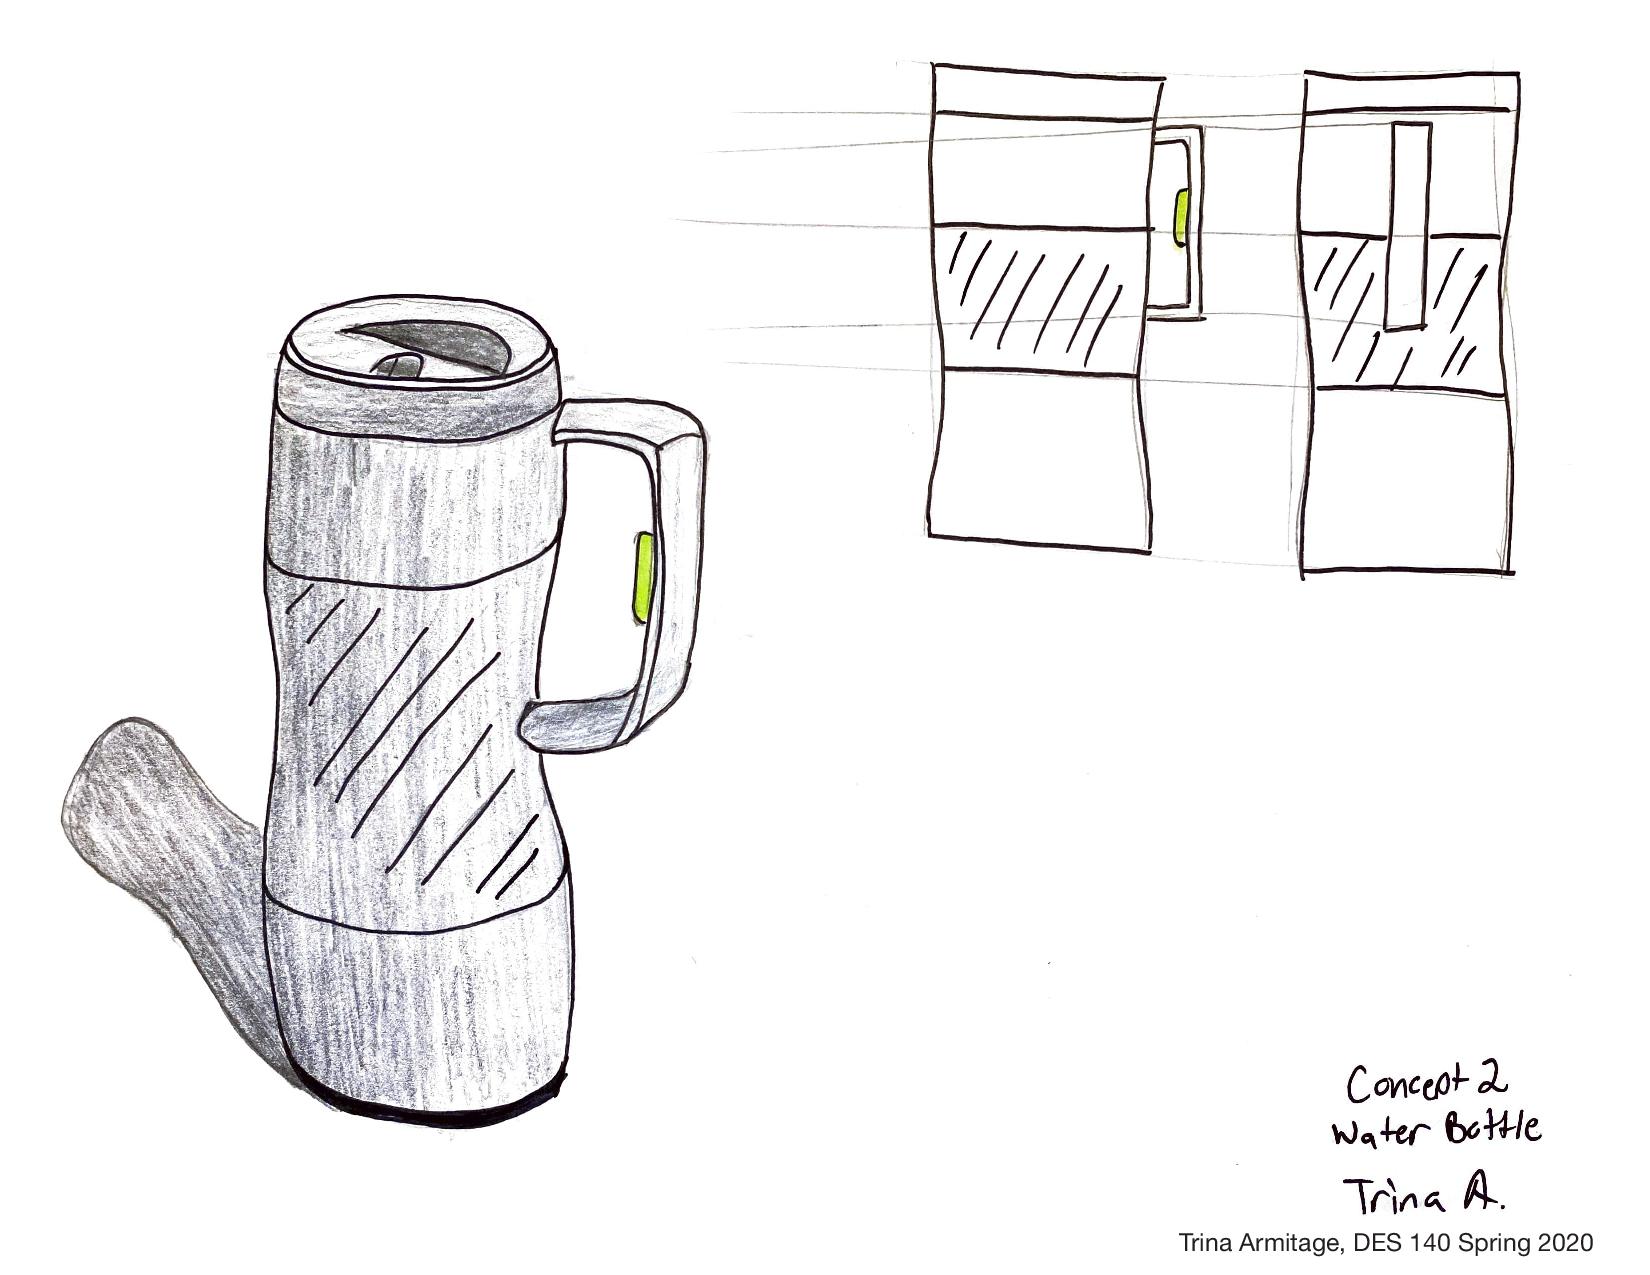 Concept 2
Water Bottle
Trina A.
Trina Armitage, DES 140 Spring 2020